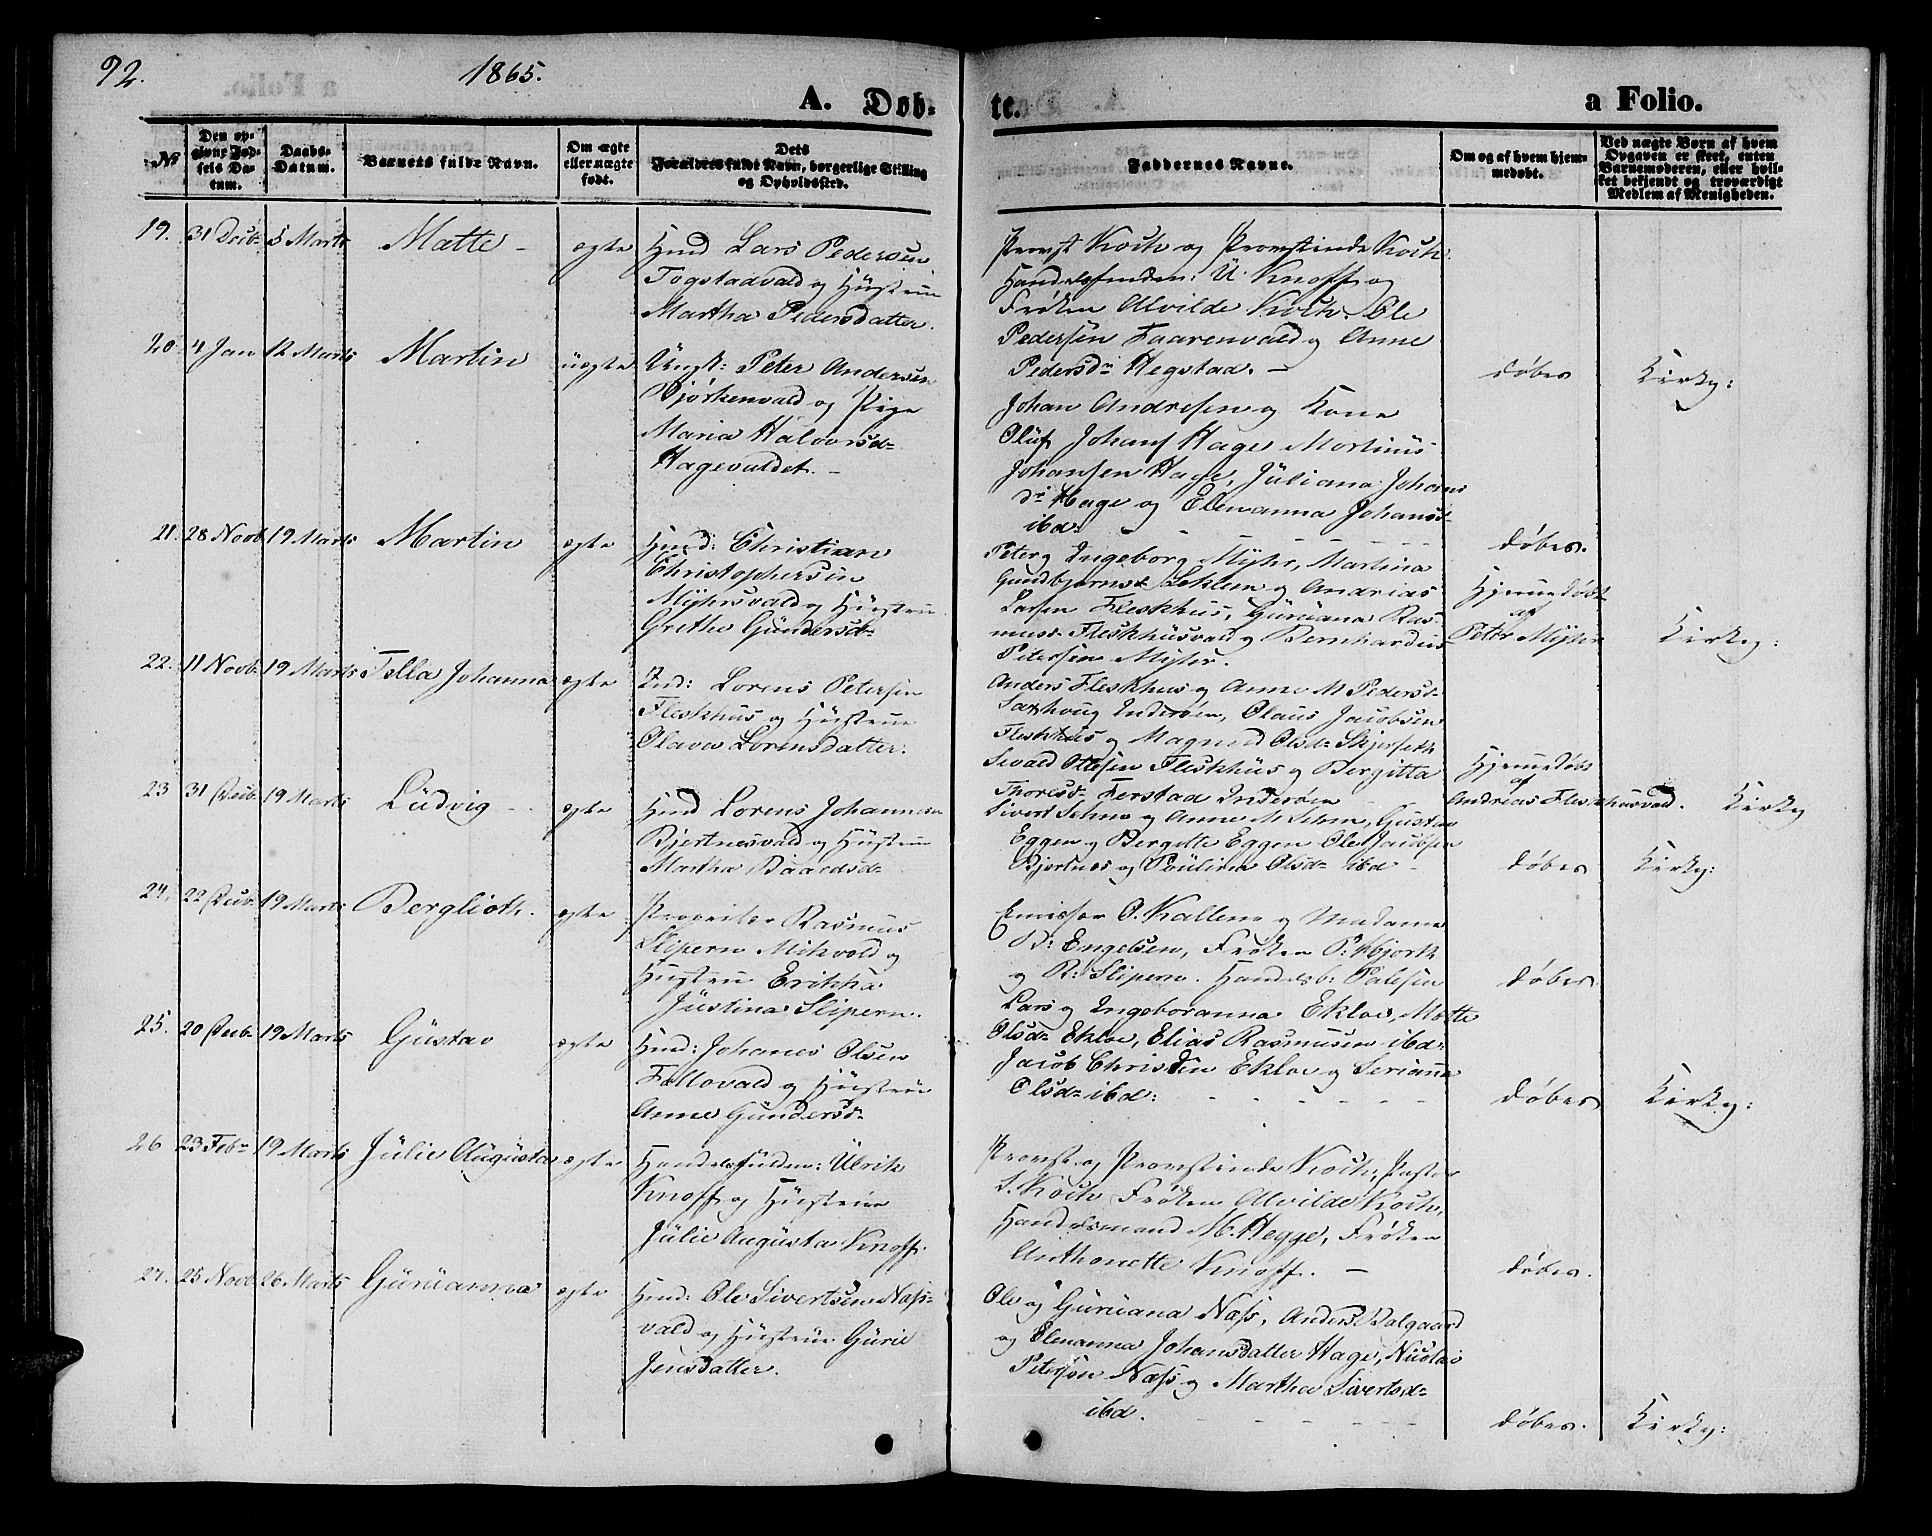 92.
1865.
A. Døb-
te.
a Folio.
№
Den op-
givne Fød-
sels Da-
tum.
Daabs-
Datum.
Barnets fulde Navn.
Om ægte
eller uægte
født.
Dets
Forældres fulde Navn, borgerlige Stilling
og Opholdssted.
Faddernes Navne.
Om og af hvem hjem-
medøbt.
Ved uægte Børn af hvem
Opgaven er skeet, enten
Barnemoderen, eller hvil-
ket bekjendt og troværdigt
Medlem af Menigheden.
19. 31 Decb. 5 Marts Mette - ægte
Hmd Lars Pedersen
Togstadvald og Hustrue
Martha Pedersdatter.
Provst Koch og Provstinde Koch
U. Knoff og
Frøken Alvilde Koch. Ole
Pedersen Faarenvald og Anne
Pedersdr Hegstad. -
døbes
20. 4 Jan 12 Marts Martin uægte
Ungk: Peter Andersen
Bjørkenvald og Pige
Maria Halvorsd-
Hagevaldet. -
Johan Andresen og Kone
Oluf Johans Hage Mortinus
Johansen Hage, Juliana Johans
dr Hage og Elenanna Johansd-
ibd.
døbes.
Kirkg:
21. 28 Novb. 19 Marts Martin ægte
Hmd: Christian
Christophersen
Myhrsvald og Hustrue
Grethe Gundersd-
Peter og Ingeborg Myhr, Martina
Gundbjørnsd. Leklem og Andrias
Larsen Fleskhus, Guruana Ras-
musd- Fleskhusvald og Bernhardus
Petersen Myhr.
Hjemmedøbt
af
Peter Myhr
Kirkg:
22. 11 Novb. 19 Marts Tella Johanna ægte
Ind: Lorens Petersen
Fleskhus og Hustrue
Olava Lorensdatter.
Anders Fleskhus og Anne M Pedersd-
Saxhoug Inderøen, Olaus Jacobsen
Fleskhus og Magnild Olsd- Skjerseth
Sivald Ottesen Fleskhus og Bergitta
Thoresd- Ferstad Inderøen
Hjemmedøbt
af
Andreas Fleskhusvald.
Kirkg
23 31 Decb. 19 Marts Ludvig - ægte
Hmd Lorens Johannesen
Bjertnesvald og Hustrue
Martha Baardsd-
Sivert Selmo og Anne M Selmo, Gustav
Eggen og Bergitte Eggen Ole Jacobsen
Bjertnes og Pauline Olsd- ibd -
døbes
Kirkg:
24. 22 Decb. 19 Marts Berglioth. ægte
Proprietær Rasmus
Slipern Mikvold og
Hustrue Erikka
Justina Slipern.
O. Kallem og Madame
B: Engelsen, Frøken P: Hjorth
og R: Slipern. Handelsb: Palesen
døbes
25. 20 Decb. 19 Marts Gustav ægte
Hmd: Johanes Olsen
Follovald og Hustrue
Anne Gundersd-
Lars og Ingeboranna Ekloe, Mette
Olsd- Ekloe, Elias Rasmusen ibd:
Jacob Christian Ekloe og Serianna
Olsd- ibd:
døbes
Kirkg:
26 23 Feb- 19 Marts Julie Augusta ægte
Ulrik
Knoff og Hustrue
Julie Augusta Knoff.
Provst og Provstinde Koch, Pastor
S. Koch Frøken Alvilde Koch,
Handelsmand M. Hegge, Frøken
Anthonette Knoff. -
døbes.
27. 25 Novb. 26 Marts Guruanna ægte
Hmd: Ole Sivertsen Næss-
vald og Hustrue Gurie
Jensdatter.
Ole og Guruana Næss, Anders Dalgaard
og Elenanna Johansdatter Hage, Nicolai
Petersen Næss og Martha Sivertsd-
ibd.
døbes.
Kirkg: